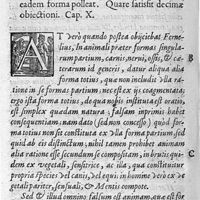 eadem forma polleat. Quare satisfit decimæ
obiectioni. Cap. X.
AT verò quando postea obijciebat Ferne-
lius, In animali præter formas singula-
rum partium, carnis, nerui, ossis, & cæ
terarum id generis, datur aliqua alia
forma totius, quæ non includit illa ra-
tione in se formas partium: nec ex iis conflata:
ergo ista forma totius, de qua nobis instituta est oratio,
est simplex quædam natura; falsam inprimis habet
consequutionem: nam dato (sed non concesso) quod for
ma totius non sit constituta ex illa forma partium sed
quid ab eis distinctum, nihil tamen prohibet animalis
aliam ratione esse secundum se compositam, in brutis qui-
dem ex vegetali, sensitric, ac illa, qua constituitur
propria species vel canis, vel equi: in homine verò ex ve
getali pariter, sensuali, & Mentis compote.
Sed & illud omnino falsum est animam, quæ est for
B